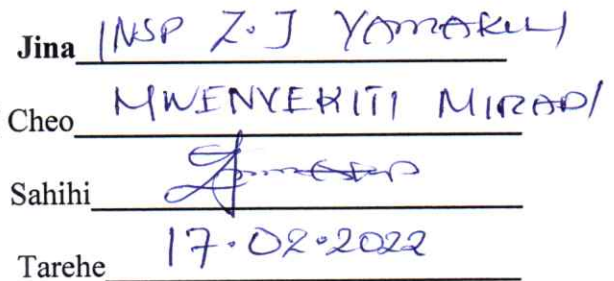 Jina INSP Z.J YAMAKULI
Cheo MWENYEKITI MIRADI
Sahihi
Tarehe 17.02.2022